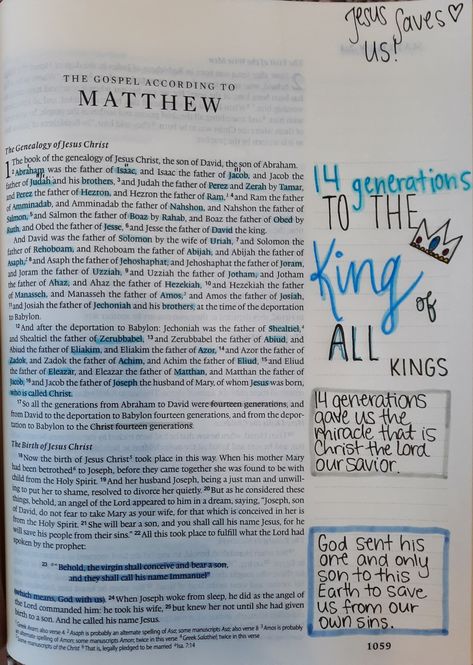 Jesus Saves♡
Us!
THE GOSPEL ACCORDING TO
MATTHEW
The Genealogy of Jesus Christ
1 The book of the genealogy of Jesus Christ, the son of David, the son of Abraham.
2 Abraham was the father of Isaac, and Isaac the father of Jacob, and Jacob the
father of Judah and his brothers, 3 and Judah the father of Perez and Zerah by Tamar,
and Perez the father of Hezron, and Hezron the father of Ram, 4 and Ram the father
of Amminadab, and Amminadab the father of Nahshon, and Nahshon the father of
Salmon, 5 and Salmon the father of Boaz by Rahab, and Boaz the father of Obed by
Ruth, and Obed the father of Jesse, 6 and Jesse the father of David the king.
And David was the father of Solomon by the wife of Uriah, 7 and Solomon the
father of Rehoboam, and Rehoboam the father of Abijah, and Abijah the father of
Asaph, 8 and Asaph the father of Jehoshaphat, and Jehoshaphat the father of Joram,
and Joram the father of Uzziah, 9 and Uzziah the father of Jotham, and Jotham
the father of Ahaz, and Ahaz the father of Hezekiah, 10 and Hezekiah the father
of Manasseh, and Manasseh the father of Amos, and Amos the father of Josiah,
11 and Josiah the father of Jechoniah and his brothers, at the time of the deportation
to Babylon.
12 And after the deportation to Babylon: Jechoniah was the father of Shealtiel,
and Shealtiel the father of Zerubbabel, 13 and Zerubbabel the father of Abiud, and
Abiud the father of Eliakim, and Eliakim the father of Azor, 14 and Azor the father of
Zadok, and Zadok the father of Achim, and Achim the father of Eliud, 15 and Eliud
the father of Eleazar, and Eleazar the father of Matthan, and Matthan the father of
Jacob, 16 and Jacob the father of Joseph the husband of Mary, of whom Jesus was born,
who is called Christ.
17 So all the generations from Abraham to David were fourteen generations, and
from David to the deportation to Babylon fourteen generations, and from the depor-
tation to Babylon to the Christ fourteen generations.
The Birth of Jesus Christ
18 Now the birth of Jesus Christ took place in this way. When his mother Mary
had been betrothed to Joseph, before they came together she was found to be with
child from the Holy Spirit. 19 And her husband Joseph, being a just man and unwill-
ing to put her to shame, resolved to divorce her quietly. 20 But as he considered these
things, behold, an angel of the Lord appeared to him in a dream, saying, "Joseph, son
of David, do not fear to take Mary as your wife, for that which is conceived in her is
from the Holy Spirit. 21 She will bear a son, and you shall call his name Jesus, for he
will save his people from their sins." 22 All this took place to fulfill what the Lord had
spoken by the prophet:
23 "Behold, the virgin shall conceive and bear a son,
and they shall call his name Immanuel"
(which means, God with us). 24 When Joseph woke from sleep, he did as the angel of
the Lord commanded him: he took his wife, 25 but knew her not until she had given
birth to a son. And he called his name Jesus.
14 generations
TO THE
King
of
ALL
KINGS
14 generations
gave us the
miracle that is
Christ the Lord
our savior.
God sent his
one and only
son to this
Earth to save
us from our
own sins.
1059